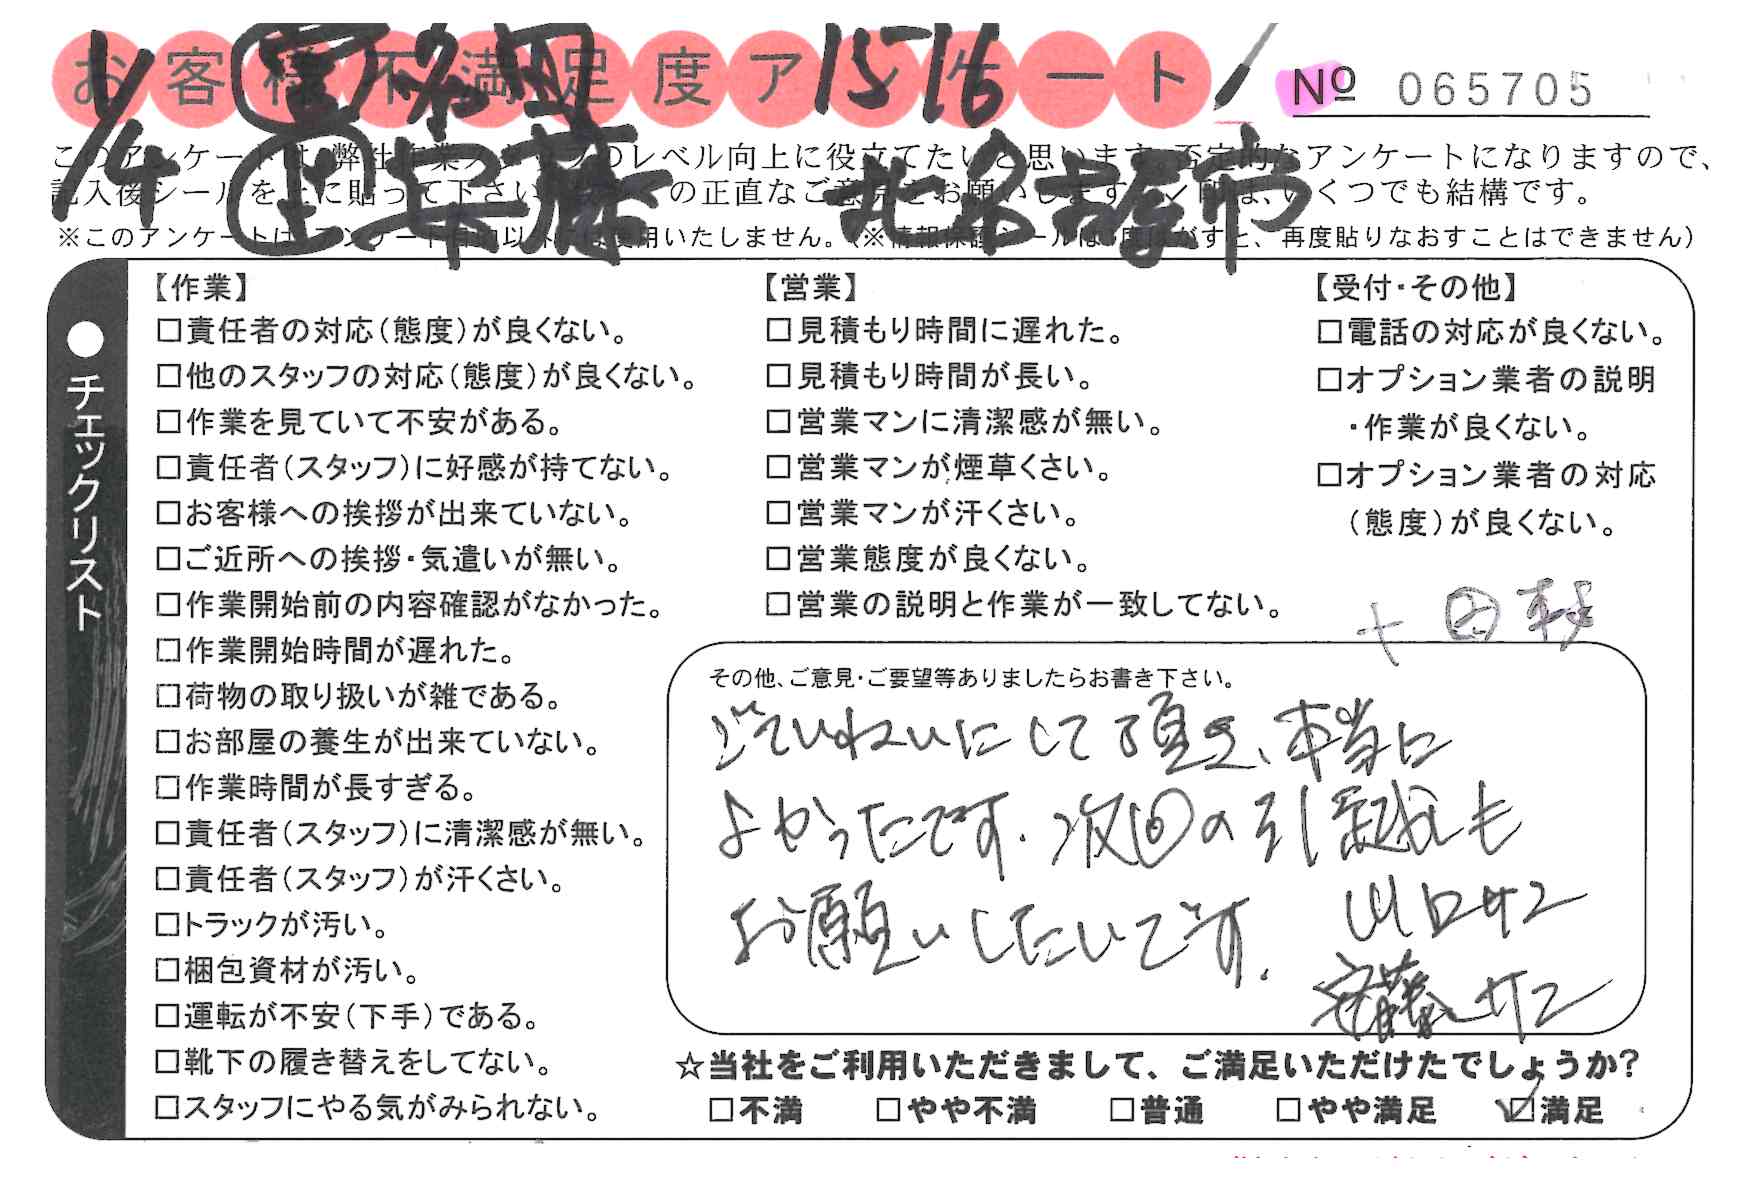 お客様不満足度アンケート
№ 065705
1/4
15-16
安藤
北名古屋市
このアンケートは、弊社作業スタッフのレベル向上に役立てたいと思います。否定的なアンケートになりますので、
記入後シールを上に貼って下さい。 の正直なご意見をお願いします。✓印は、いくつでも結構です。
※このアンケートは、アンケート目的以外には使用いたしません。（※情報保護シールは1度はがすと、再度貼りなおすことはできません）
●チェックリスト
【作業】
□責任者の対応（態度）が良くない。
□他のスタッフの対応（態度）が良くない。
□作業を見ていて不安がある。
□責任者（スタッフ）に好感が持てない。
□お客様への挨拶が出来ていない。
□ご近所への挨拶・気遣いが無い。
□作業開始前の内容確認がなかった。
□作業開始時間が遅れた。
□荷物の取り扱いが雑である。
□お部屋の養生が出来ていない。
□作業時間が長すぎる。
□責任者（スタッフ）に清潔感が無い。
□責任者（スタッフ）が汗くさい。
□トラックが汚い。
□梱包資材が汚い。
□運転が不安（下手）である。
□靴下の履き替えをしてない。
□スタッフにやる気がみられない。
【営業】
□見積もり時間に遅れた。
□見積もり時間が長い。
□営業マンに清潔感が無い。
□営業マンが煙草くさい。
□営業マンが汗くさい。
□営業態度が良くない。
□営業の説明と作業が一致してない。
【受付・その他】
□電話の対応が良くない。
□オプション業者の説明
・作業が良くない。
□オプション業者の対応
（態度）が良くない。
その他、ご意見・ご要望等ありましたらお書き下さい。
ていねいにして頂き、本当に
よかったです。次回の引越しも
お願いしたいです。
山口サン
安藤サン
☆当社をご利用いただきまして、ご満足いただけたでしょうか？
□不満 □やや不満 □普通 □やや満足 ☑満足